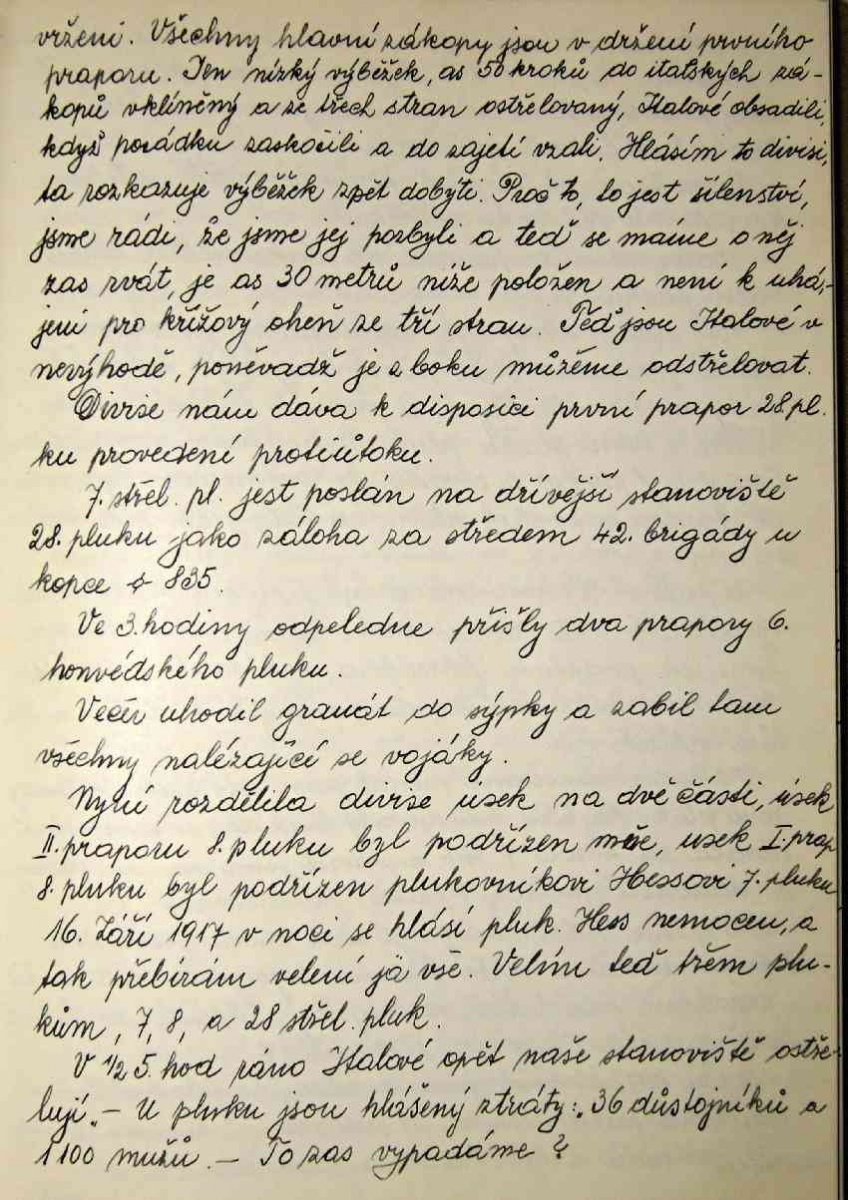 vržení. Všechny hlavní zákopy jsou v držení prvního
praporu. Jen nízký výběžek, as 50 kroků do italských zá-
kopů vklíněný a ze třech stran ostřelovaný, Italové obsadili,
když posádku zaskočili a do zajetí vzali. Hlásím to divisi,
ta rozkazuje výběžek zpět dobýti. Proč to, to jest šílenství,
jsme rádi, že jsme jej pozbyli a teď se máme o něj
zas rvát, je as 30 metrů níže položen a není k uhá-
jení pro křížový oheň ze tří stran. Teď jsou Italové v
nevýhodě, poněvadž je z boku můžeme odstřelovat.
Divise nám dáva k disposici první prapor 28 pl.
ku provedení protiútoku.
7. střel. pl. jest poslán na dřívější stanoviště
28. pluku jako záloha za středem 42. brigády u
kopce 835.
Ve 3. hodiny odpeledne přišly dva prapory 6.
honvédského pluku.
Večer uhodil granát do sýpky a zabil tam
všechny nalézající se vojáky.
Nyní rozdělila divise úsek na dvě části, úsek
II. praporu 8. pluku byl podřízen mě, usek I. prap
8. pluku byl podřízen plukovníkovi Hessovi 7. pluku
16. Září 1917 v noci se hlásí pluk. Hess nemocen, a
tak přebírám velení já vše. Velím teď třem plu-
kům, 7, 8, a 28 střel. pluk.
V 1/2 5. hod ráno Italové opět naše stanoviště ostře-
lují. – U pluku jsou hlášený ztráty: 36 důstojníků a
1100 mužů. – To zas vypadáme?